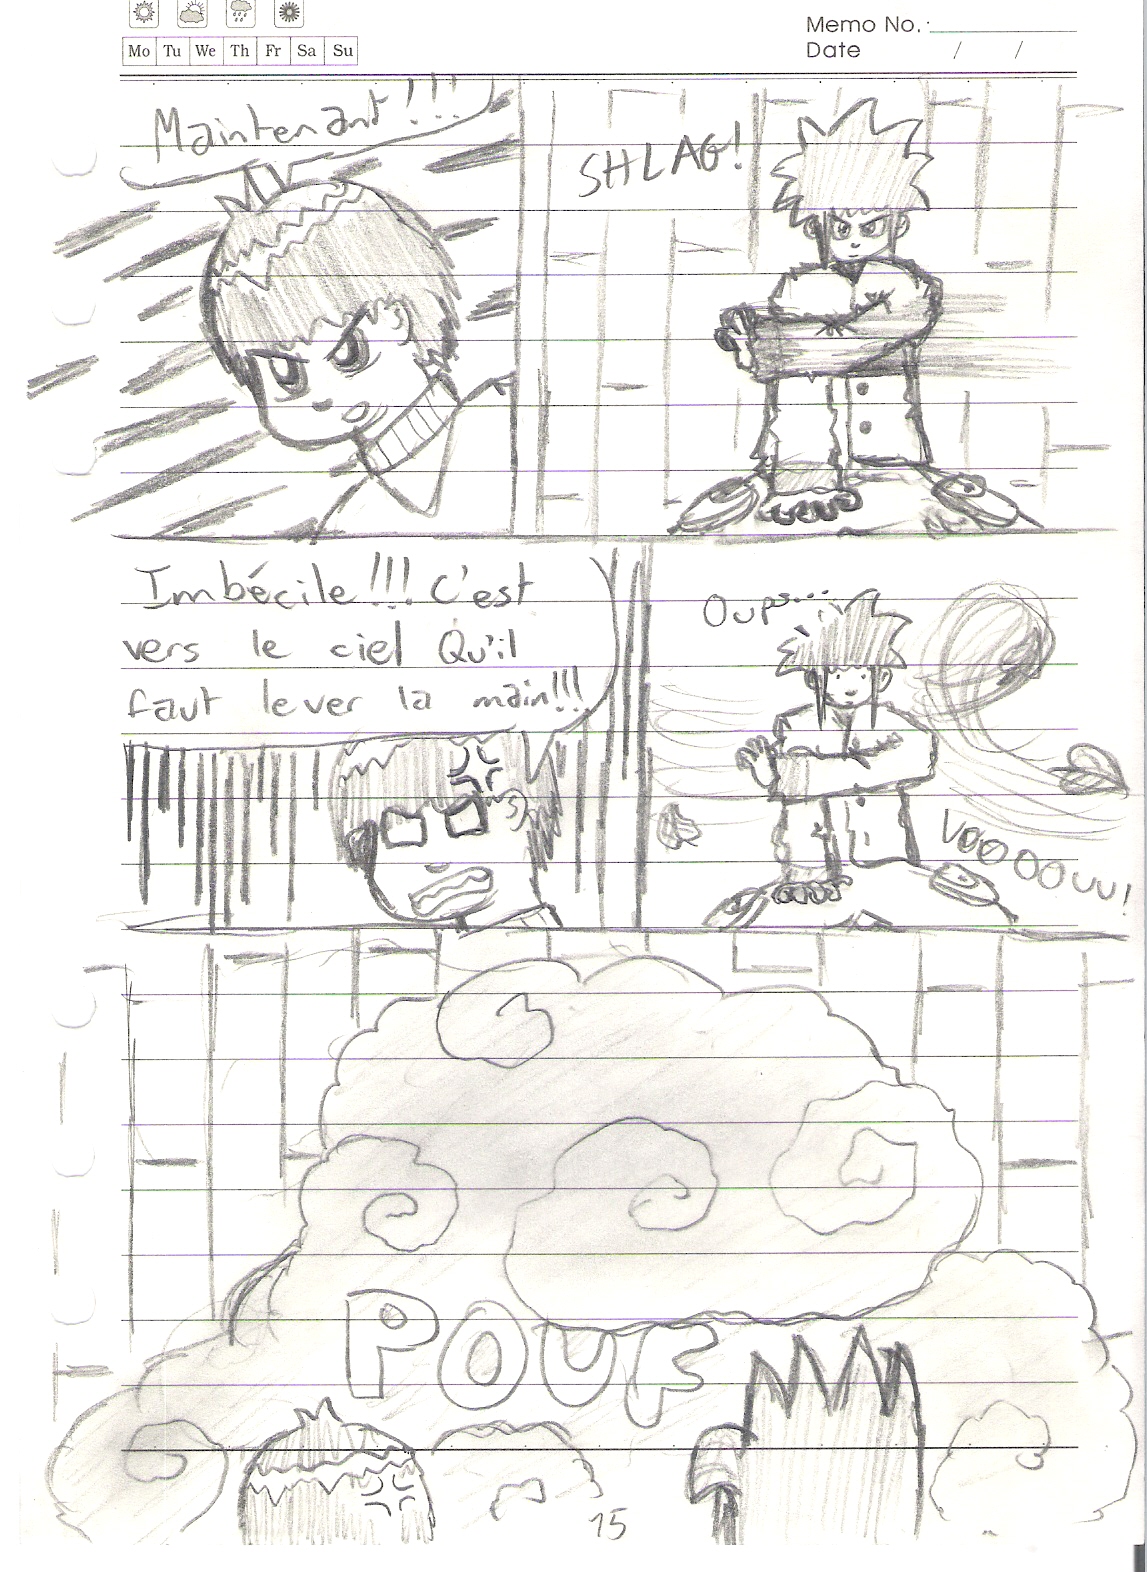 Memo No.:
Mo Tu We Th Fr Sa Su
Date / /
Maintenant!!!
SHLAG!
Imbécile!!! C'est
vers le ciel Qu'il
faut lever la main!!!
Oups....
VOOOOUU!
POUF
15